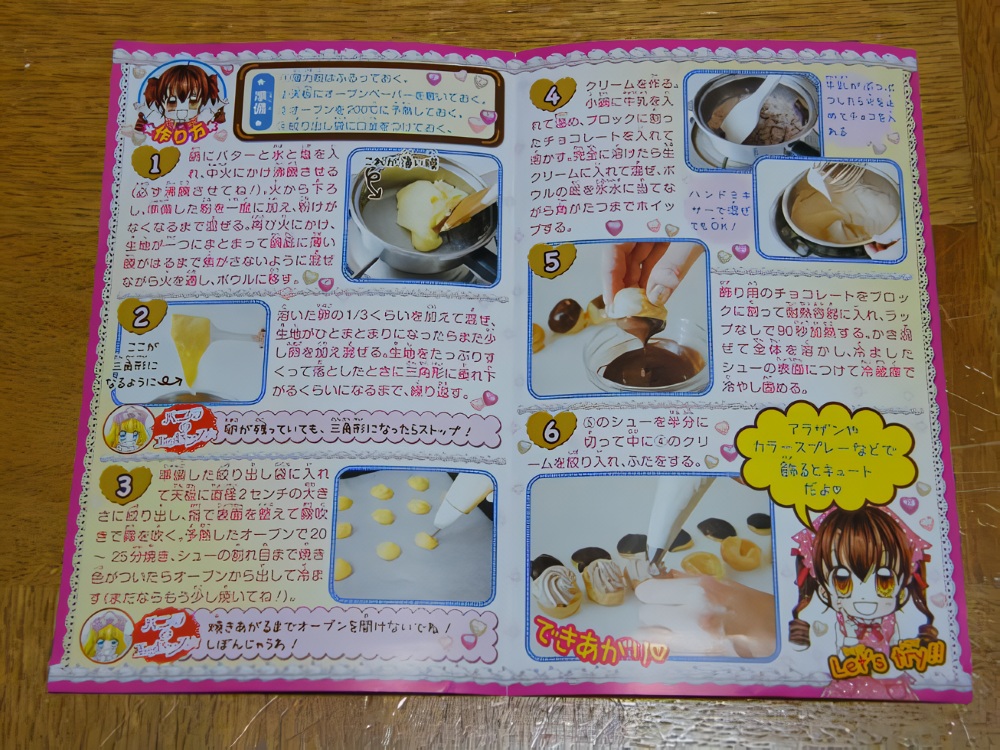 作り方
準備
①薄力粉はふるっておく。
②天板にオーブンペーパーを敷いておく。
③オーブンを200℃に予熱しておく。
④絞り出し袋に口金をつけておく。
1
鍋にバターと水と塩を入
れ、中火にかけ沸騰させる
(必ず沸騰させてね!)。火から下ろ
し、準備した粉を一度に加え、粉けが
なくなるまで混ぜる。再び火にかけ、
生地が一つにまとまって鍋底に薄い
膜がはるまで焦がさないように混ぜ
ながら火を通し、ボウルに移す。
これが薄い膜
2
ここが
三角形に
なるように
溶いた卵の1/3くらいを加えて混ぜ、
生地がひとまとまりになったらまた少
し卵を加え混ぜる。生地をたっぷりす
くって落としたときに三角形に垂れ下
がるくらいになるまで、繰り返す。
卵が残っていても、三角形になったらストップ!
3
準備した絞り出し袋に入れ
て天板に直径2センチの大き
さに絞り出し、指で表面を整えて霧吹
きで霧を吹く。予熱したオーブンで20
〜25分焼き、シューの割れ目まで焼き
色がついたらオーブンから出して冷ま
す(まだならもう少し焼いてね!)。
焼きあがるまでオーブンを開けないでね!
しぼんじゃうわ!
4
クリームを作る。
小鍋に牛乳を入
れて温め、ブロックに割っ
たチョコレートを入れて
溶かす。完全に溶けたら生
クリームに入れて混ぜ、ボ
ウルの底を氷水に当てな
がら角がたつまでホイッ
プする。
ハンドミキ
サーで混ぜ
てもOK!
5
飾り用のチョコレートをブロッ
クに割って耐熱容器に入れ、ラッ
プなしで90秒加熱する。かき混
ぜて全体を溶かし、冷ました
シューの表面につけて冷蔵庫で
冷やし固める。
6
⑤のシューを半分に
切って中に④のクリ
ームを絞り入れ、ふたをする。
アラザンや
カラースプレーなどで
飾るとキュート
だよ♡
できあがり♡
Let's try!!